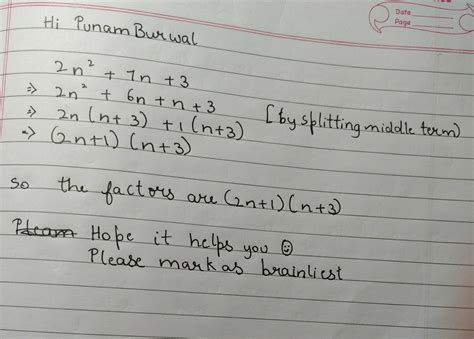 Date
Page
Hi Punam Burwal
2n² + 7n + 3
⇒ 2n² + 6n + n + 3
⇒ 2n (n+3) + 1 (n+3) [by splitting middle term)
⇒ (2n+1) (n+3)
So the factors are (2n+1) (n+3)
Hope it helps you ☺
Please mark as brainliest